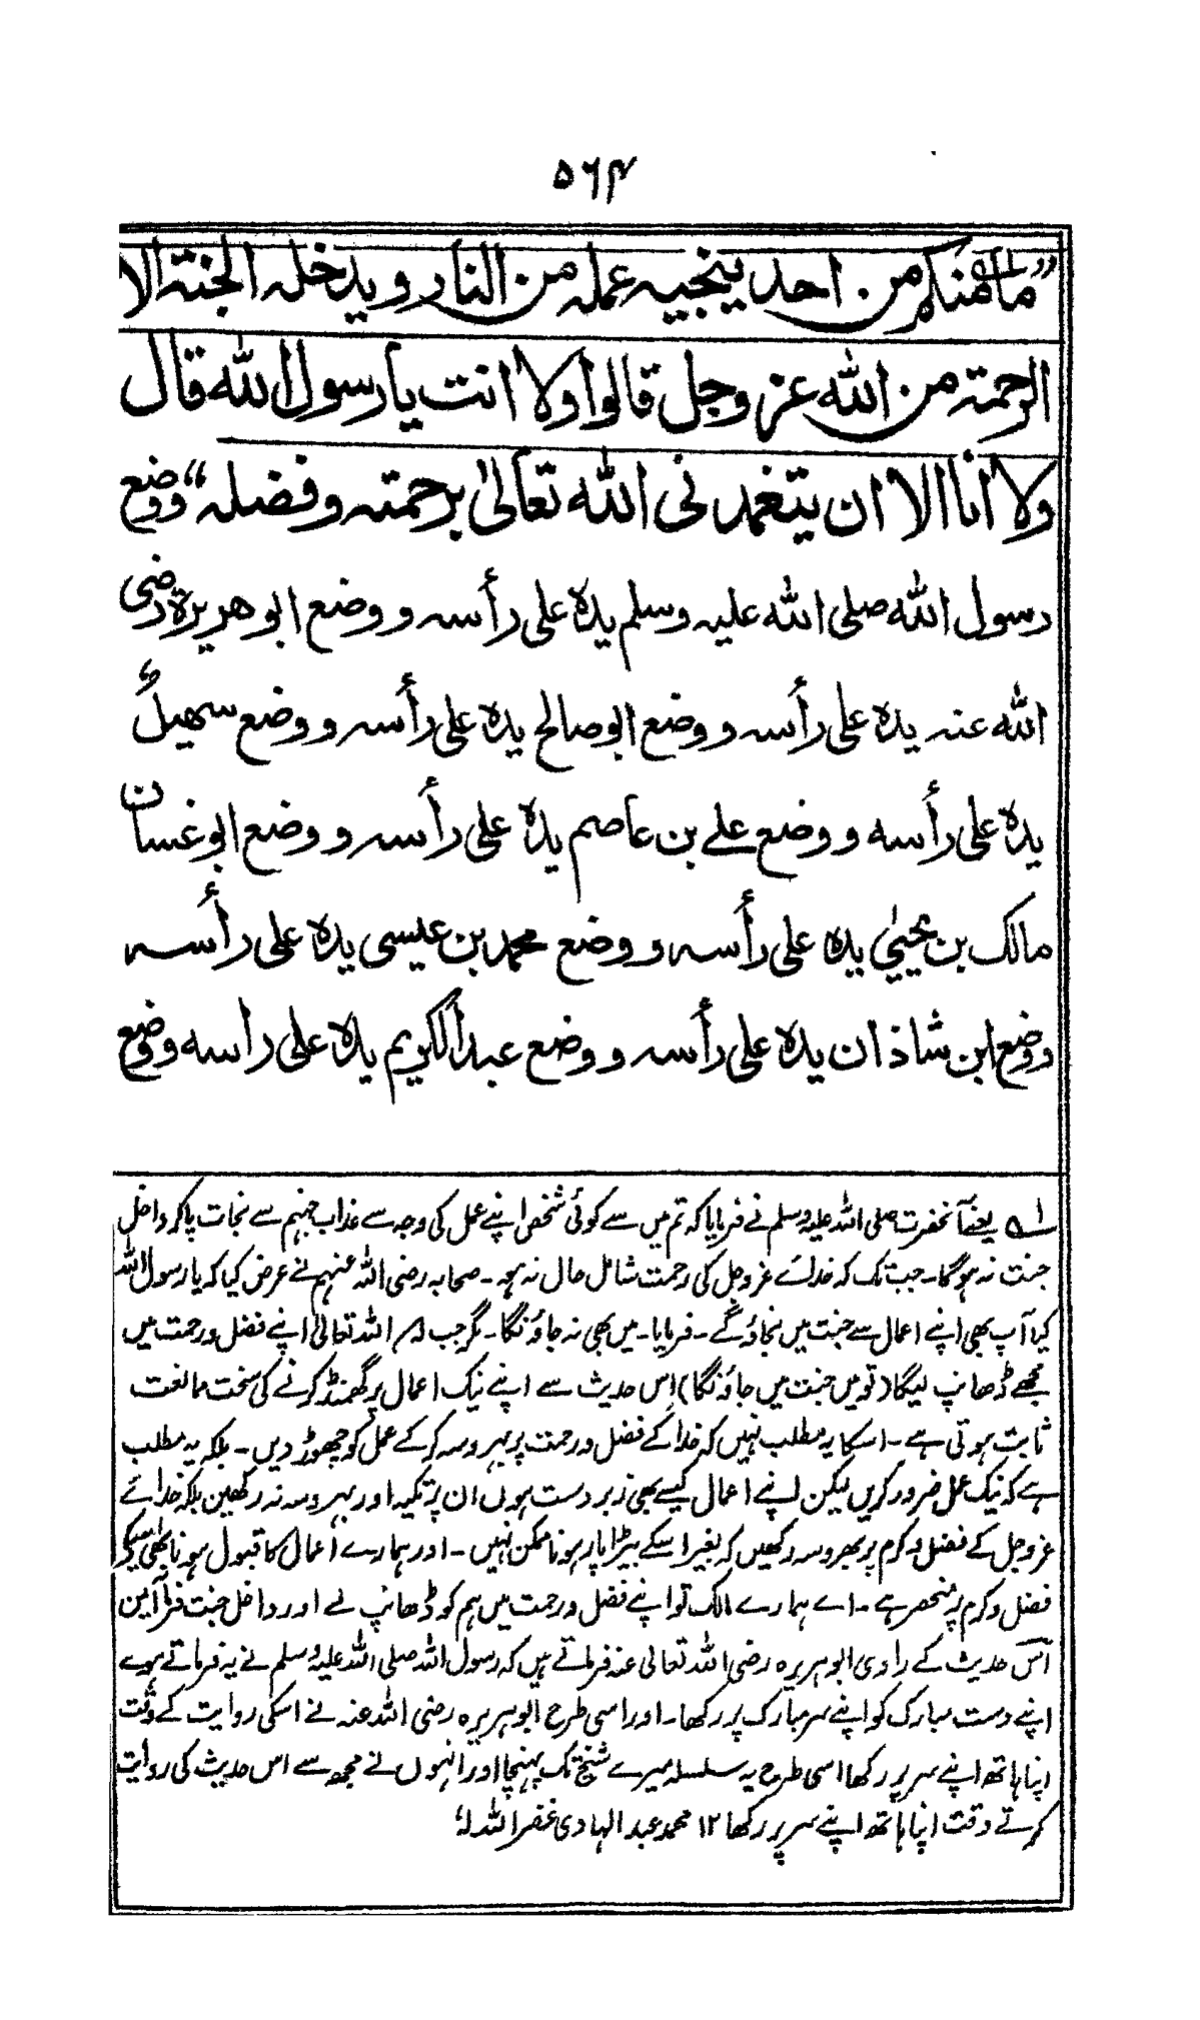 ۵۶۴
”مامنكم من احد ينجيه عمله من النار ويدخله الجنة الا
الرحمة من الله عز وجل قالوا ولا انت يا رسول الله قال
ولا انا الا ان يتغمدنى الله تعالىٰ برحمته و فضله“ ووضع
رسول الله صلى الله عليه وسلم يده على رأسه و وضع ابو هريرة رضى
الله عنه يده على رأسه و وضع ابو صالح يده على رأسه و وضع سهيلؒ
يده على رأسه و وضع علے بن عاصم يده على رأسه و وضع ابو غسان
مالك بن يحيىٰ يده على رأسه و وضع محمد بن عيسى يده على رأسه
ووضع ابن شاذان يده على رأسه و وضع عبد الكريم يده على راسه ووضع
لے یعنے آنحضرت صلی اللہ علیہ وسلم نے فرمایا کہ تم میں سے کوئی شخص اپنے عمل کی وجہ سے عذاب جہنم سے نجات پاکر داخل
جنت نہ ہوگا۔ جب تک کہ خدائے عزوجل کی رحمت شامل حال نہ ہو۔ صحابہ رضی اللہ عنہم نے عرض کیا کہ یا رسول اللہ
کیا آپ بھی اپنے اعمال سے جنت میں نجاؤگے۔ فرمایا۔ میں بھی نہ جاؤنگا۔ مگر جب کہ اللہ تعالیٰ اپنے فضل و رحمت میں
مجھے ڈھانپ لیگا (تو میں جنت میں جاؤنگا) اس حدیث سے اپنے نیک اعمال پر گھمنڈ کرنے کی سخت ممانعت
ثابت ہوتی ہے۔ اسکا یہ مطلب نہیں کہ خدا کے فضل و رحمت پر بہروسہ کر کے عمل کو چھوڑ دیں۔ بلکہ یہ مطلب
ہے کہ نیک عمل ضرور کریں لیکن اپنے اعمال کیسے بھی زبردست ہوں ان پر تکیہ اور بہروسہ نہ رکھیں بلکہ خدائے
عزوجل کے فضل و کرم پر بھروسہ رکھیں کہ بغیر اسکے بیڑا پار ہونا ممکن نہیں۔ اور ہمارے اعمال کا قبول ہونا بھی اسیکے
فضل و کرم پر منحصر ہے۔ اے ہمارے مالک تو اپنے فضل و رحمت میں ہم کو ڈھانپ لے اور داخل جنت فرما آمین
اس حدیث کے راوی ابوہریرہ رضی اللہ تعالی عنہ فرماتے ہیں کہ رسول اللہ صلی اللہ علیہ وسلم نے یہ فرماتے ہوے
اپنے دست مبارک کو اپنے سر مبارک پر رکھا۔ اور اسی طرح ابوہریرہ رضی اللہ عنہ نے اسکی روایت کے وقت
اپنا ہاتھ اپنے سر پر رکھا اسی طرح یہ سلسلہ میرے شیخ تک پہنچا اور انہوں نے مجھ سے اس حدیث کی روایت
کرتے وقت اپنا ہاتھ اپنے سر پر رکھا ۱۲ محمد عبد الہادی غفر اللہ لہٗ